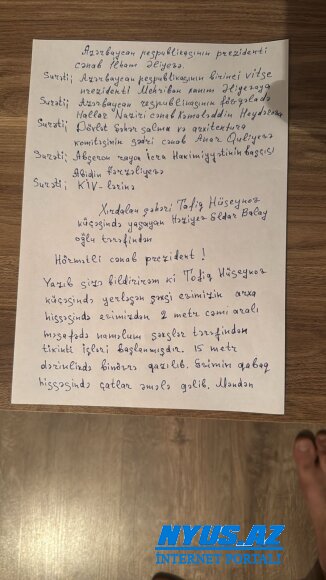 Azərbaycan respublikasının prezidenti
cənab İlham Əliyevə.
Surəti; Azərbaycan respublikasının birinci vitse
prezidenti Mehriban xanım Əliyevaya
Surəti; Azərbaycan respublikasının fövqəladə
Hallar Naziri cənab Kəmaləddin Heydərova
Surəti; Dövlət şəhər salma və arxitektura
komitəsinin sədri cənab Anar Quliyevə
Surəti; Abşeron rayon İcra Hakimiyyətinin başçısı
Abidin Fərzəliyevə
Surəti; KİV-lərinə
Xırdalan şəhəri Tofiq Hüseynov
küçəsində yaşayan Həziyev Eldar Balay
oğlu tərəfindən
Hörmətli cənab prezident!
Yazıb sizə bildirirəm ki Tofiq Hüseynov
küçəsində yerləşən şəxsi evimizin arxa
hissəsində evimizdən 2 metr cəmi aralı
məsafədə naməlum şəxslər tərəfindən
tikinti işləri başlanmışdır. 15 metr
dərinlikdə bünövrə qazılıb. Evimin qabaq
hissəsində çatlar əmələ gəlib. Məndən
NYUS.AZ
INTERNET PORTALI